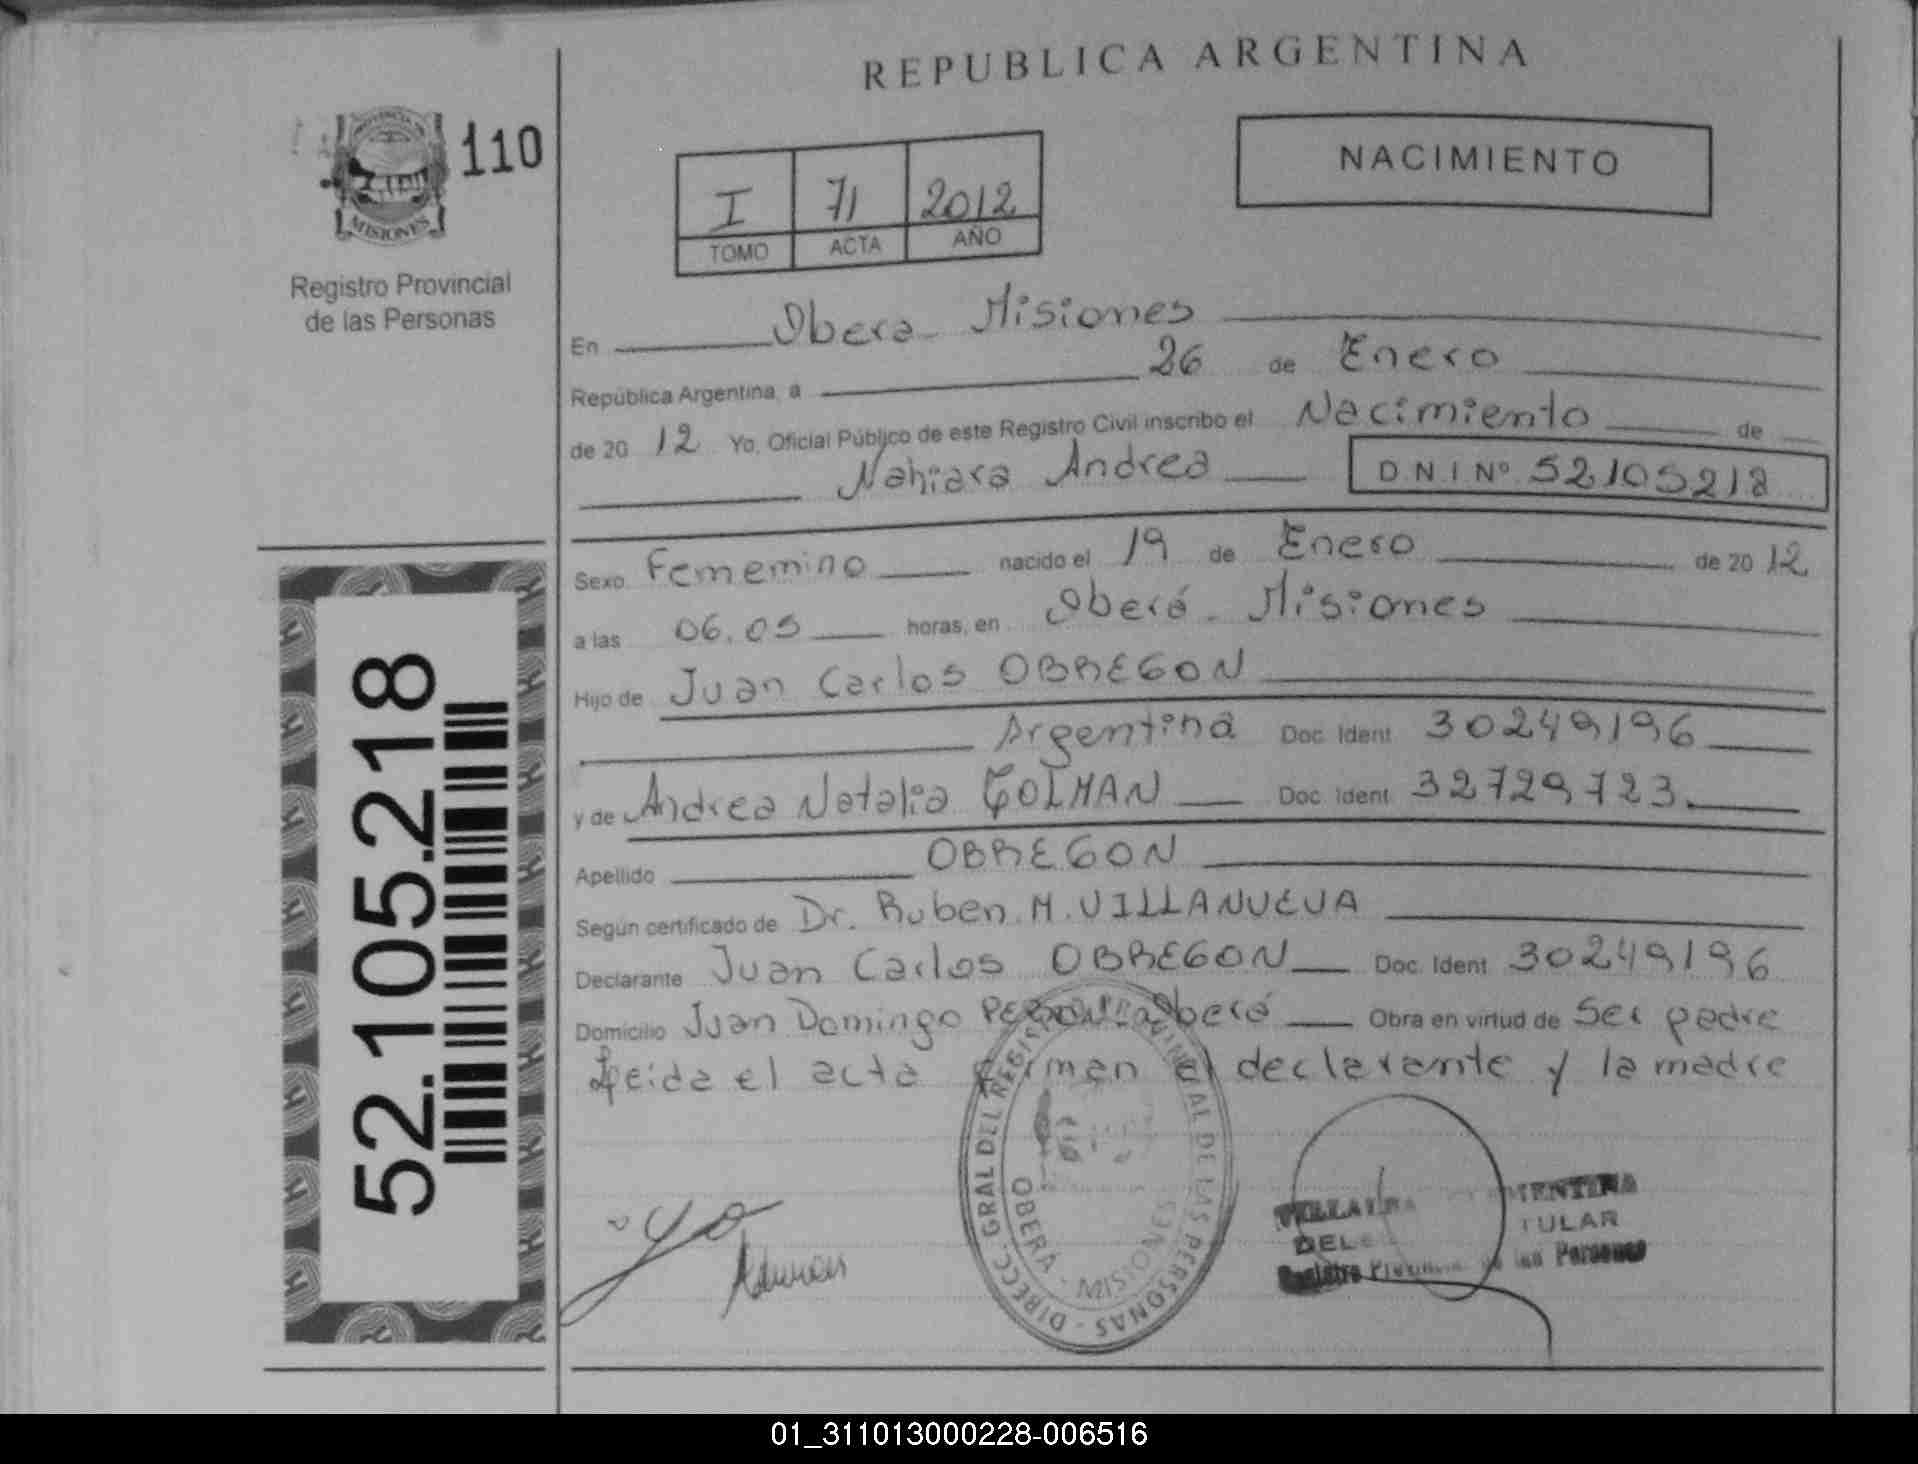 REPUBLICA ARGENTINA
110
PROVINCIA DE
MISIONES
Registro Provincial
de las Personas
I 71 2012
TOMO ACTA AÑO
NACIMIENTO
En Obera Misiones
República Argentina, a 26 de Enero
de 20 12 Yo, Oficial Público de este Registro Civil inscribo el Nacimiento de
Nahiara Andrea D.N.I Nº 52105218
Sexo Fememino nacido el 19 de Enero de 20 12
a las 06.05 horas, en Oberá - Misiones
Hijo de Juan Carlos OBREGON
Argentina Doc. Ident. 30249196
y de Andrea Natalia GOLMAN Doc. Ident. 32729723
Apellido OBREGON
Según certificado de Dr. Ruben M. VILLANUEVA
Declarante Juan Carlos OBREGON Doc. Ident. 30249196
Domicilio Juan Domingo PERON - Oberá Obra en virtud de Ser padre
Leida el acta firman el declarante y la madre
52.105.218
DIRECC. GRAL DEL REGISTRO PROVINCIAL DE LAS PERSONAS
OBERÁ - MISIONES
TULAR
Registro de las Personas
01_311013000228-006516